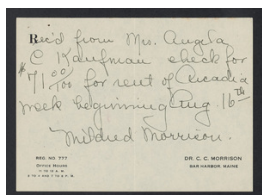 Rec'd from Mrs. Angela
C Kaufman check for
$71 00/100 for rent of Arcadia
week beginning Aug 16th
Mildred Morrison.
REG. NO. 777
OFFICE HOURS
11 TO 12 A. M.
DR. C. C. MORRISON
BAR HARBOR, MAINE